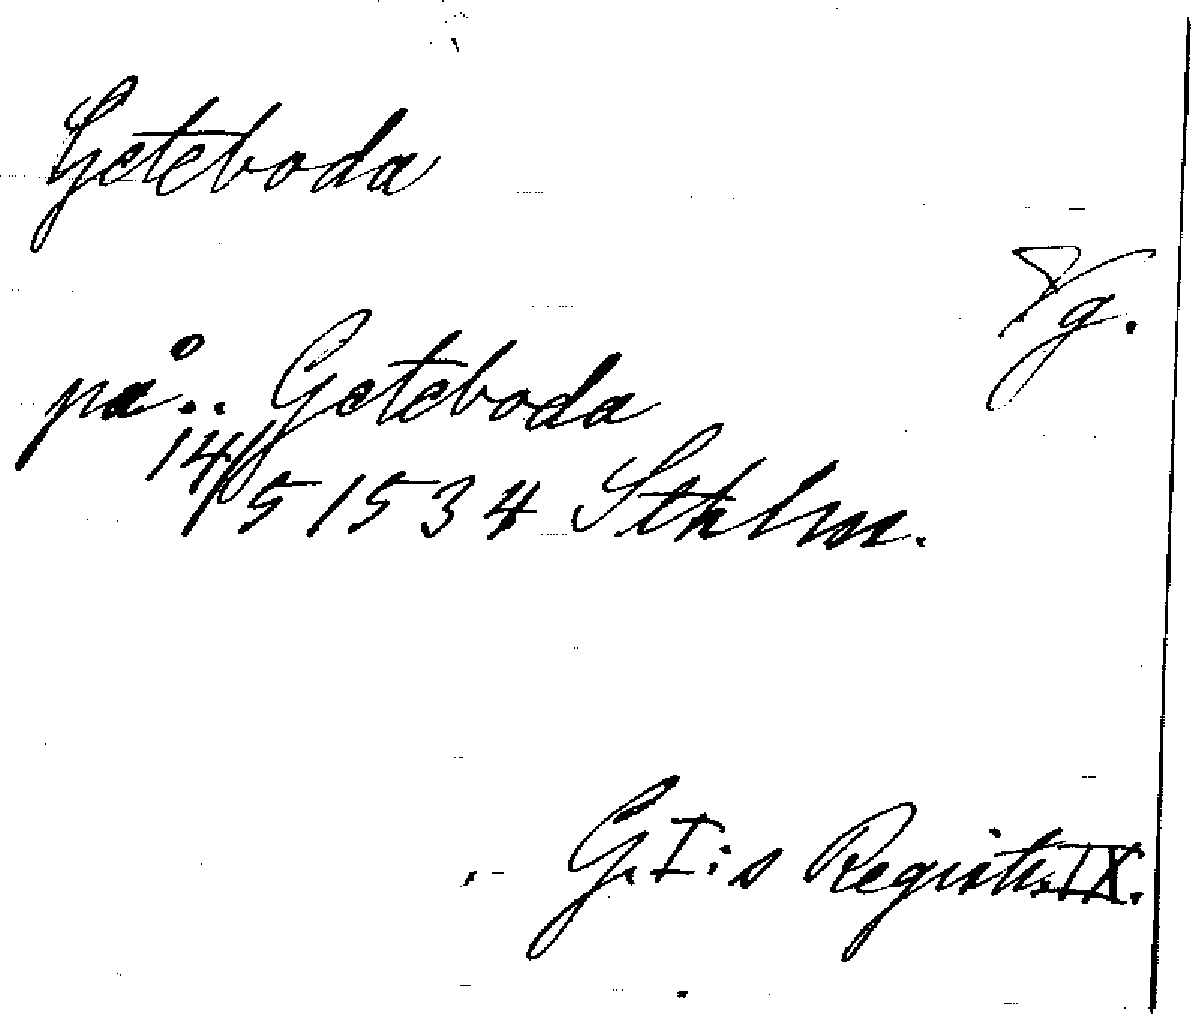 Geteboda
Vg.
på.. Geteboda
14/5 1534 Sthlm.
G.I:s Registr. IX.